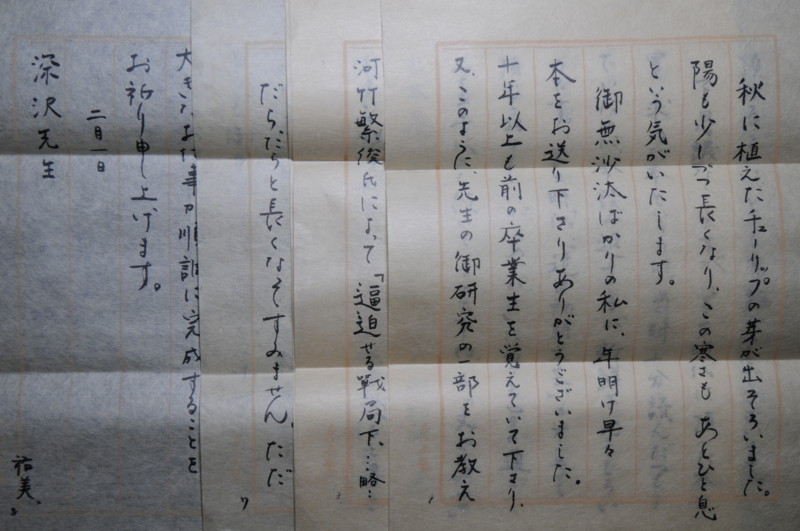 秋に植えたチューリップの芽が出そろいました。
陽も少しづつ長くなり、この寒さも あとひと息
という気がいたします。
御無沙汰ばかりの私に、年明け早々
本をお送り下さりありがとうございました。
十年以上も前の卒業生を覚えていて下さり、
又、このように、先生の御研究の一部をお教え
河竹繁俊氏によって「逼迫せる戦局下、…略…
だらだらと長くなってすみません。ただ
大きなお仕事が順調に完成することを
お祈り申し上げます。
二月一日
祐美
深沢先生